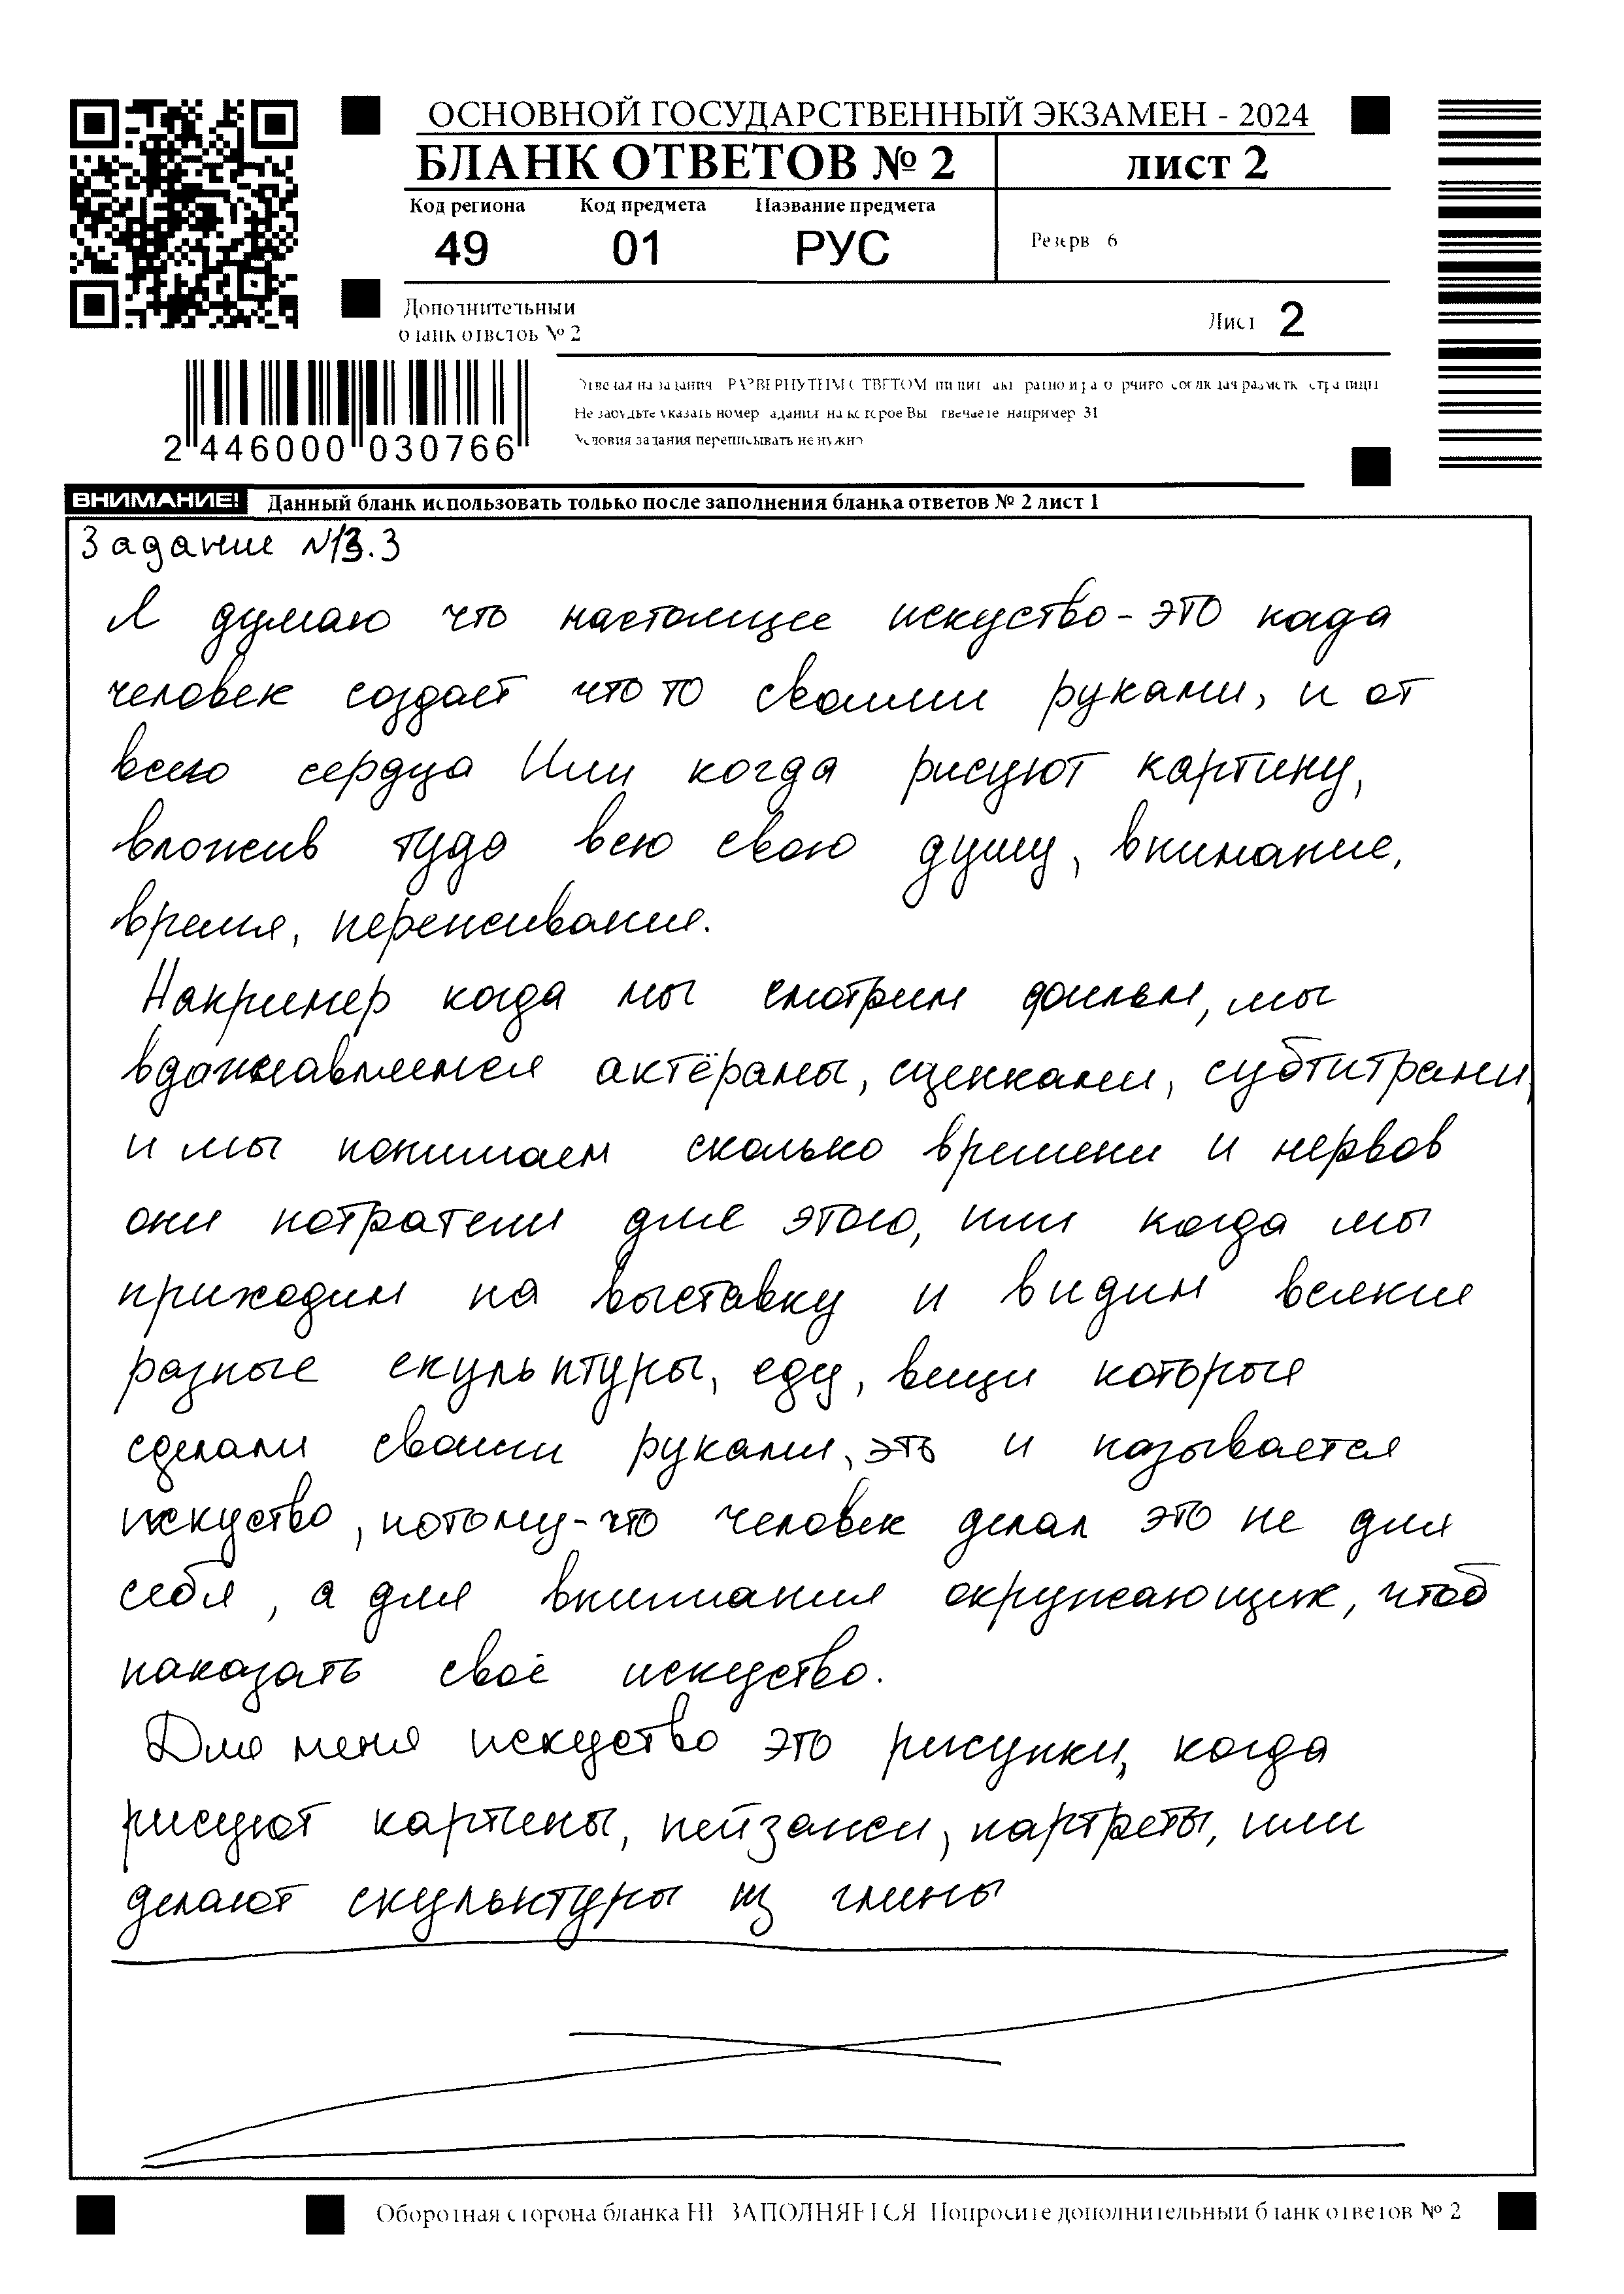 ОСНОВНОЙ ГОСУДАРСТВЕННЫЙ ЭКЗАМЕН - 2024
БЛАНК ОТВЕТОВ № 2 лист 2
Код региона Код предмета Название предмета
49 01 РУС
Резерв 6
Дополнительный
бланк ответов № 2
Лист 2
2 446000 030766
Не забудьте указать номер задания на которое Вы отвечаете например 31
Условия задания переписывать не нужно
ВНИМАНИЕ! Данный бланк использовать только после заполнения бланка ответов № 2 лист 1
Задание №13.3
Я думаю что настоящее искуство - это када
человек создает что то своими руками, и от
всего сердца Или когда рисуют картину,
вложив туда всю свою душу, внимание,
время, переживания.
Например когда мы смотрим фильм, мы
актёрамы, сценками, субтитрами,
и мы понимаем сколько времени и нервов
они потратели для этого, или когда мы
приходим на выставку и видим всякие
разные скульптуры, еду, вещи которые
сделали своими руками, это и называется
искуство, потому-что человек делал это не для
себя, а для внимания окружающих, чтоб
показать своё искуство.
Для меня искуство это рисунки, когда
рисуют картены, пейзажи, партреты, или
делают скульптуры из глины
Оборотная сторона бланка НЕ ЗАПОЛНЯЕТСЯ Попросите дополнительный бланк ответов № 2